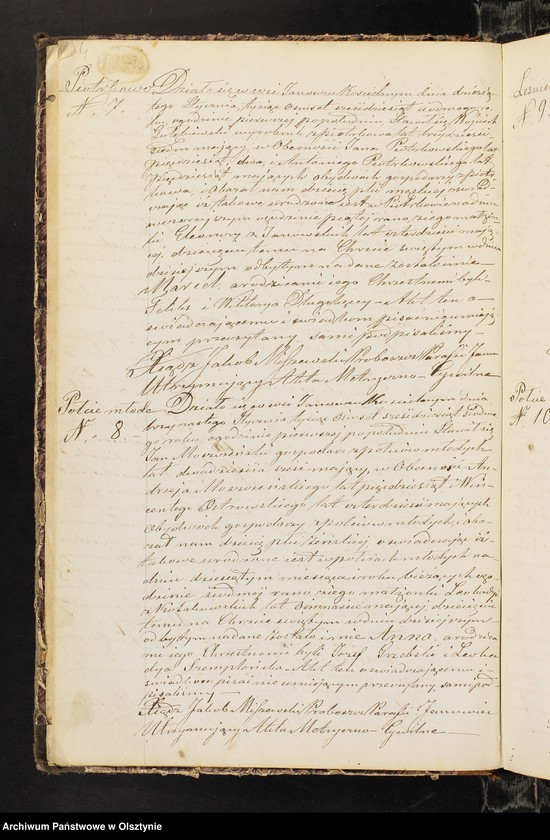 Piotrkowo
N. 7.
Działo się we wsi Janowcu Kościelnym dnia dziesią-
tego Stycznia, tysiąc ośmset sześćdziesiąt siódmego ro-
ku, o godzinie pierwszej popołudniu. Stawił się Wojciech
wyrobnik z Piotrkowa lat trzydzieści
siedm mający, w Obecności Jana Piotrkowskiego lat
pięćdziesiąt dwa, i Antoniego Piotrkowskiego lat
pięćdziesiąt mających, obydwóch gospodarzy z Piotr-
kowa, i okazał nam dziecię płci męzkiej oświad-
czając iż takowe urodzone jest w Piotrkowie na dniu
wczorajszym o godzinie piątej rano, z jego małżon-
ki Eleonory z lat czterdzieści mają-
cej, dziecięciu temu na Chrzcie świętym w dniu
dzisiejszym odbytym nadane zostało imie
Marcel, a rodzicami jego Chrzestnemi byli
Feliks i Wiktorya Długołęccy. Akt ten o-
świadczającemu i świadkom pisać nieumieją-
cym przeczytany sami podpisaliśmy.
Xiądz Jakob Miszewski Proboszcz Parafii Janow
Utrzymujący Akta Metryczno-Cywilne
Połcie młode
N. 8
Działo się we wsi Janowcu Kościelnym dnia
trzynastego Stycznia tysiąc ośmset sześćdziesiąt siódme-
go roku, o godzinie pierwszej popołudniu. Stawił się
Jan gospodarz z Połciów młodych
lat dwadzieścia sześć mający, w Obecności An-
drzeja lat pięćdziesiąt i Win-
centego Ostrowskiego lat czterdzieści mających
obydwóch gospodarzy z Połciów młodych, i oka-
zał nam dziecię płci żeńskiej oświadczając iż
takowe urodzone jest w Połciach młodych na
dniu dziewiątym miesiąca i roku bieżących o go-
dzinie siódmej rano, z jego małżonki
z lat ośmnaście mającej, dziecięciu
temu na Chrzcie świętym w dniu dzisiejszym
odbytym nadane zostało imie Anna, a rodzica-
mi jego Chrzestnemi byli Józef Grzebski i Leoka-
dya Szemplińska. Akt ten oświadczającemu i
świadkom pisać nie umiejącym przeczytany sami pod-
pisaliśmy
Xiądz Jakob Miszewski Proboszcz Parafii Janowiec
Utrzymujący Akta Metryczno-Cywilne
N 9
N 10
Archiwum Państwowe w Olsztynie